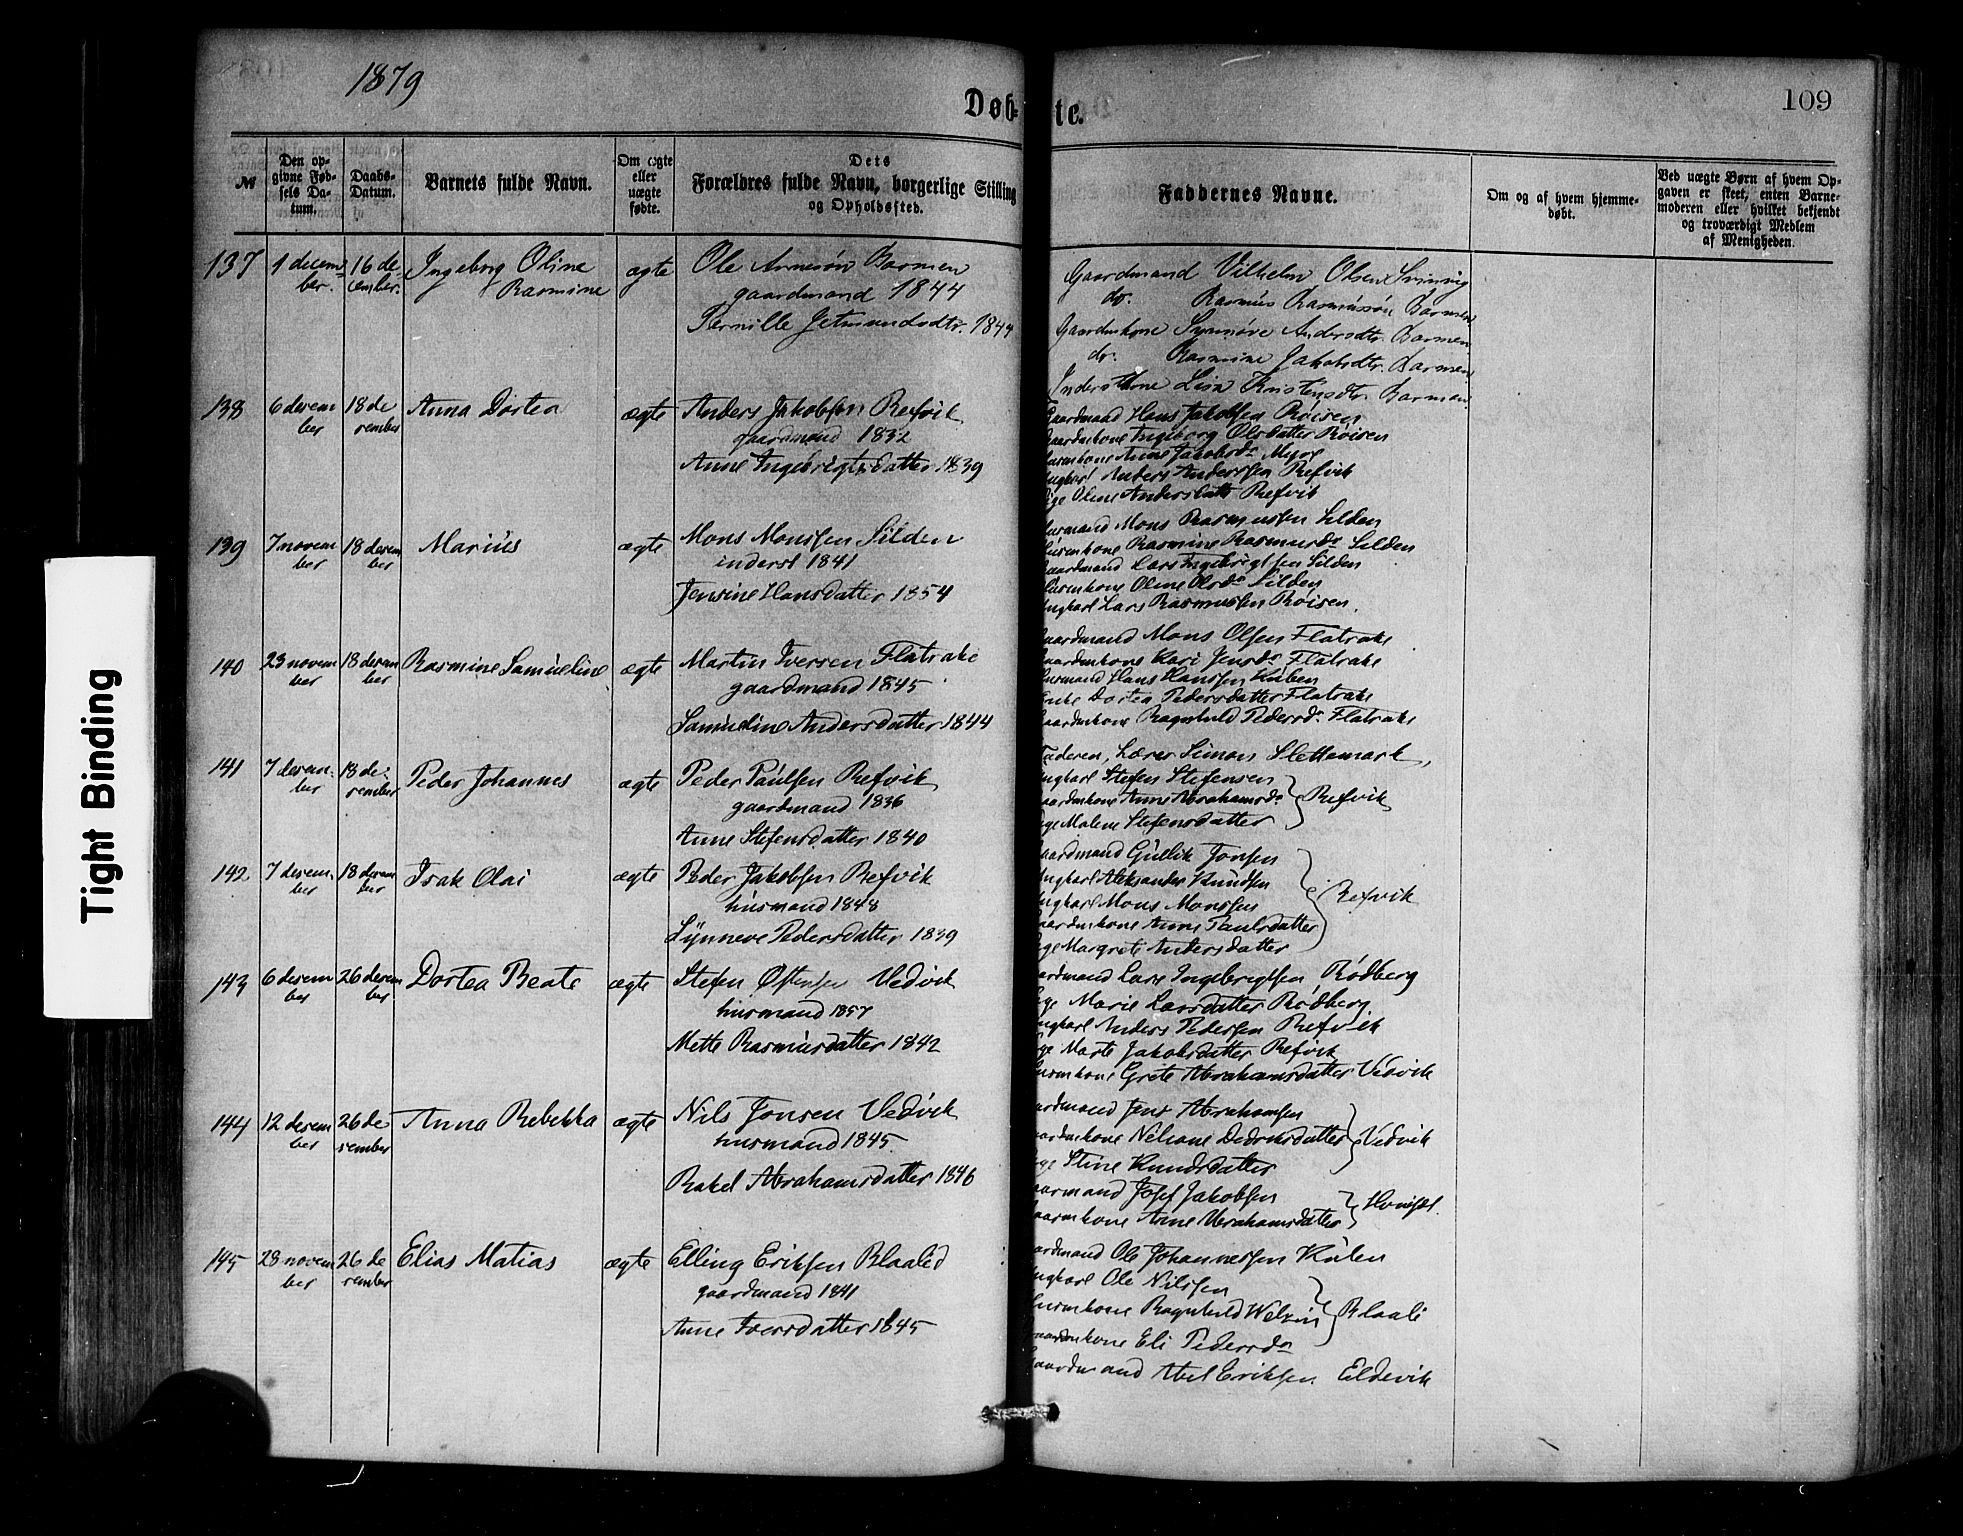 1879
Døbte.
109
№
Den op-
givne Fød-
sels Da-
tum.
Daabs-
Datum.
Barnets fulde Navn.
Om ægte
eller
uægte
fødte.
Dets
Forældres fulde Navn, borgerlige Stilling
og Opholdssted.
Faddernes Navne.
Om og af hvem hjemme-
døbt.
Ved uægte Børn af hvem Op-
gaven er skeet, enten Barne-
moderen eller hvilket bekjendt
og troværdigt Medlem
af Menigheden.
137 1 decem- 16 de- Ingeborg Oline ægte Ole Arnesøn Barmen
ber. cember. Rasmine gaardmand 1844
Pernille Jetmundsdtr. 1844
Gaardmand Vilhelm Olsen
do. Rasmus Rasmussøn Barmen
Gaardmkone Synnøve Andersdtr. Barmen
do. Rasmine Jakobsdtr. Barmen
Inderstkone Lisa Kristensdtr. Barmen
138 6 desem 18 de Anna Dortea ægte Anders Jakobsen Refvik
ber sember gaardmand 1832
Anne Ingebrigtsdatter 1839
aardmand Hans Jakobsen Røisen
aardmkone Ingeborg Olsdatter Røisen
usmkone Anne Jakobsdr
ngkarl Anders Anderssen Refvik
ige Oline Andersdatter Refvik
139 7 novem 18 desem Marius ægte Mons Monssen Silden
ber ber inderst 1841
Jensine Hansdatter 1854
usmand Mons Rasmussen Silden
usmkone Rasmine Rasmusdr Silden
aardmand Lars Ingebrigtsen Silden
usmkone Oline Olsdr Silden
ngkarl Lars Rasmussen Røisen.
140 23 novem 18 desem Rasmine Samueline ægte Martin Iversen Flatrake
ber ber gaardmand 1845
Samueline Andersdatter 1844
aardmand Mons Olsen Flatrake
aardmkone Kari Jensdr Flatrake
usmand Hans Hanssen Kuben
Enke Dortea Pedersdatter Flatrake
aardmkone Ragnhild Pedersdr Flatrake
141 7 desem- 18 de- Peder Johannes ægte Peder Paulsen Refvik
ber sember gaardmand 1836
Anne Stefensdatter 1840
Faderen, Lærer Simon Slettemark,
ngkarl Stefen Stefensen
aardmkone Anne Abrahamsdr Refvik
ige Malene Stefensdatter
142 7 desem- 18 desem Isak Olai ægte Peder Jakobsen Refvik
ber ber husmand 1848
Synneve Pedersdatter 1839
aardmand Gullik Jonsen
ngkarl Aleksander Knudsen
ngkarl Mons Monssen Refvik
aardmkone Anne Paulsdatter
ige Margrete Andersdatter
143 6 desem 26 desem Dortea Beate ægte Stefen Østensen Vedvik
ber ber husmand 1857
Mette Rasmusdatter 1842
aardmand Lars Ingebrigtsen Rødberg
ige Marie Larsdatter Rødberg
ngkarl Anders Pedersen Refvik
ige Marte Jakobsdatter Refvik
usmkone Grete Abrahamsdatter Vedvik
144 12 desem 26 de Anna Rebekka ægte Nils Jonsen Vedvik
ber sember husmand 1845.
Rakel Abrahamsdatter 1846
ardmand Jens Abrahamsen
aardmkone Nelsine Vedvik
ige Stine Knudsdatter
aarmand Josef Jakobsen
aarmkone Anne Abrahamsdatter
145 28 novem 26 de Elias Matias ægte Elling Eriksen Blaalid
ber sember gaardmand 1841
Anne Iversdatter 1845
ardmand Ole Johannessen Kuben
ngkarl Ole Nilssen
usmkone Ragnhild Blaali
aardmkone Eli Pedersdr
aardmand Abel Eriksen Eldevik
Tight Binding